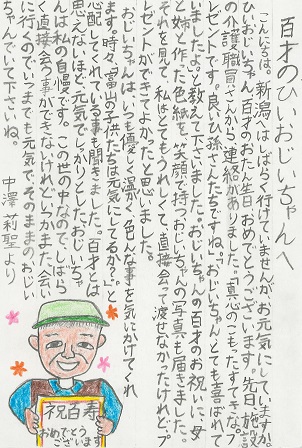 百才のひいおじいちゃんへ
こんにちは。新潟へはしばらく行けていませんが、お元気にしていますか。
ひいおじいちゃん、百才のおたん生日おめでとうございます。先日、施設
の介護職員さんから連絡がありました。「真心のこもったすてきなプ
レゼントです。良いひ孫さんたちですね。」「おじいちゃん、とても喜ばれて
いましたよ。」と教えて下さいました。おじいちゃんの百才のお祝いに、母
と姉と作った色紙を、笑顔で持つおじいちゃんの写真も届きました。
それを見て、私はとてもうれしくて、直接会って渡せなかったけれど、プ
レゼントができてよかったと思いました。
おじいちゃんは、いつも優しく温かく、色んな事を気にかけてくれ
ます。時々、「富山の子供たちは元気にしてるか？」と
心配してくれている事も聞きました。百才とは
思えないほど、元気でしっかりとしたおじいちゃ
んは私の自慢です。この世の中なので、しばら
く直接会う事ができないけれど、いつかまた、会い
に行くのでいつまでも元気で、そのままの、おじい
ちゃんでいて下さいね。
中澤 莉聖より
祝百寿
おめでとう
ございます